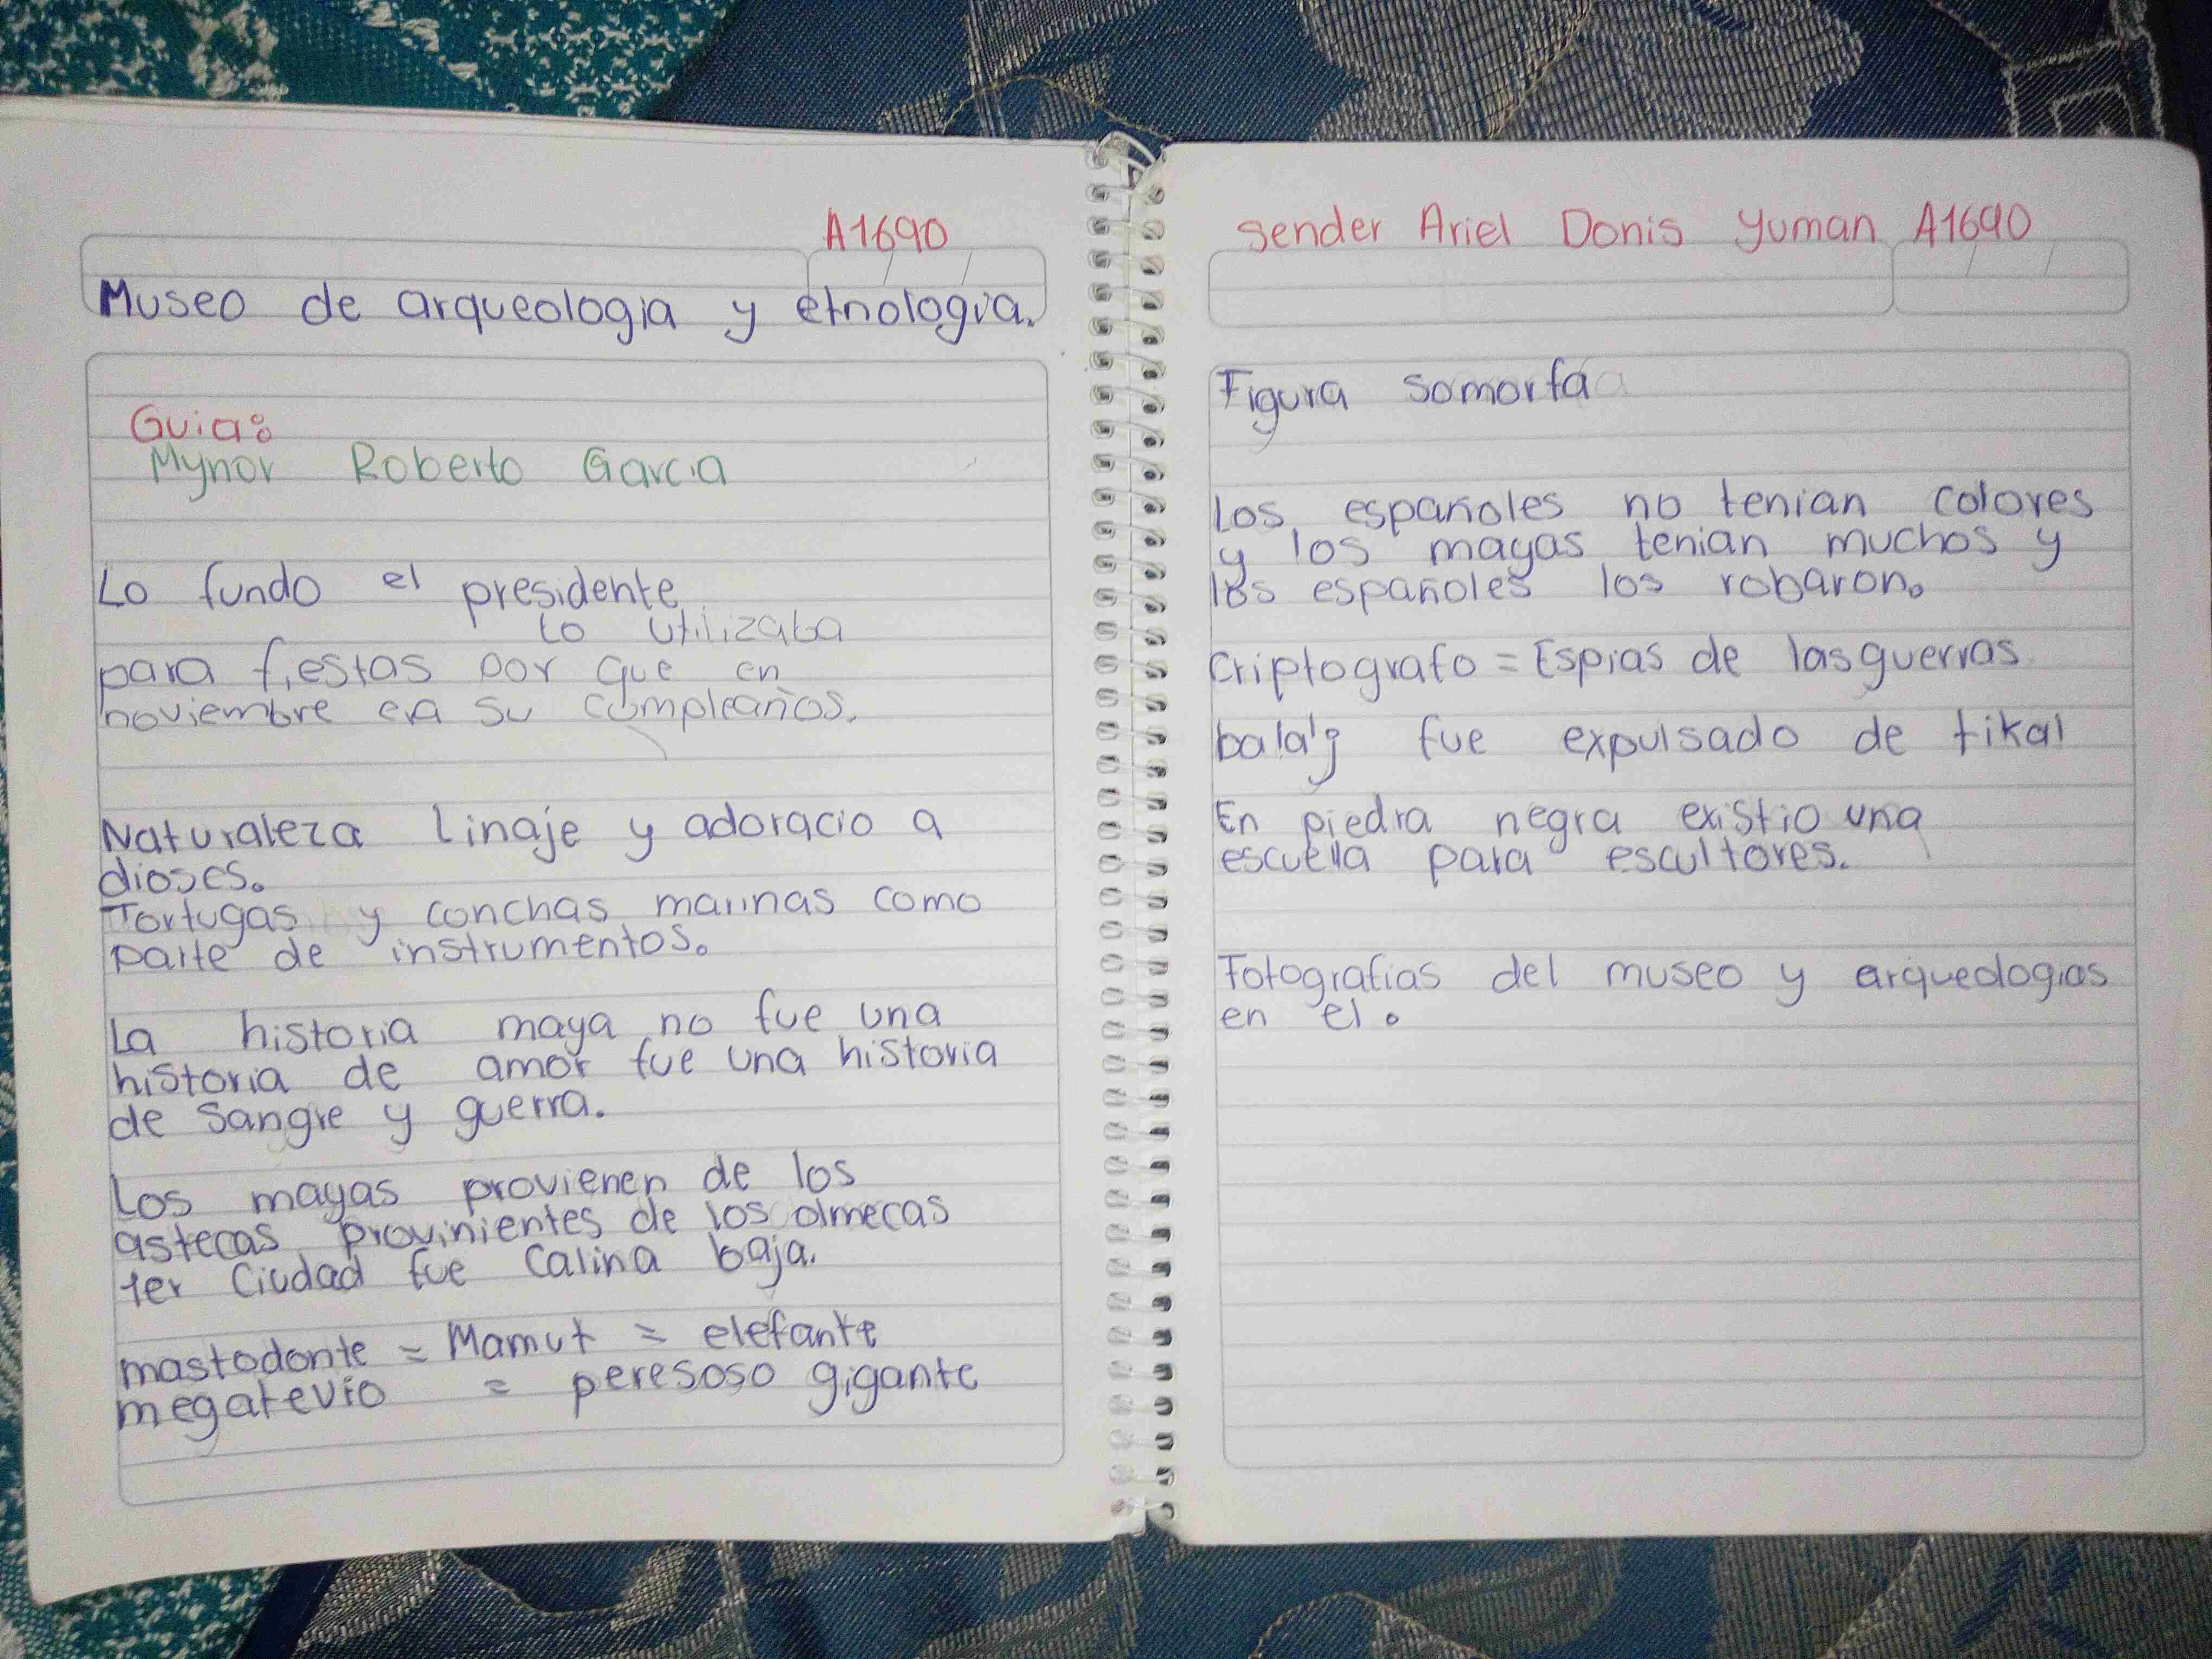 A1690
Museo de arqueologia y etnologia.
Guia:
Mynor Roberto Garcia
Lo fundo el presidente
Lo utilizaba
para fiestas por que en
noviembre era su cumpleaños.
Naturaleza linaje y adoracio a
dioses.
Tortugas y conchas marinas como
parte de instrumentos.
La historia maya no fue una
historia de amor fue una historia
de sangre y guerra.
Los mayas provienen de los
astecas provinientes de los olmecas
1er Ciudad fue Calina baja.
mastodonte = Mamut = elefante
megaterio = peresoso gigante
Sender Ariel Donis Yuman A1690
Figura somorfa
Los españoles no tenian colores
y los mayas tenian muchos y
los españoles los robaron.
Criptografo = Espias de las guerras
fue expulsado de tikal
En piedra negra existio una
escuela para escultores.
Fotografias del museo y arqueologias
en el.